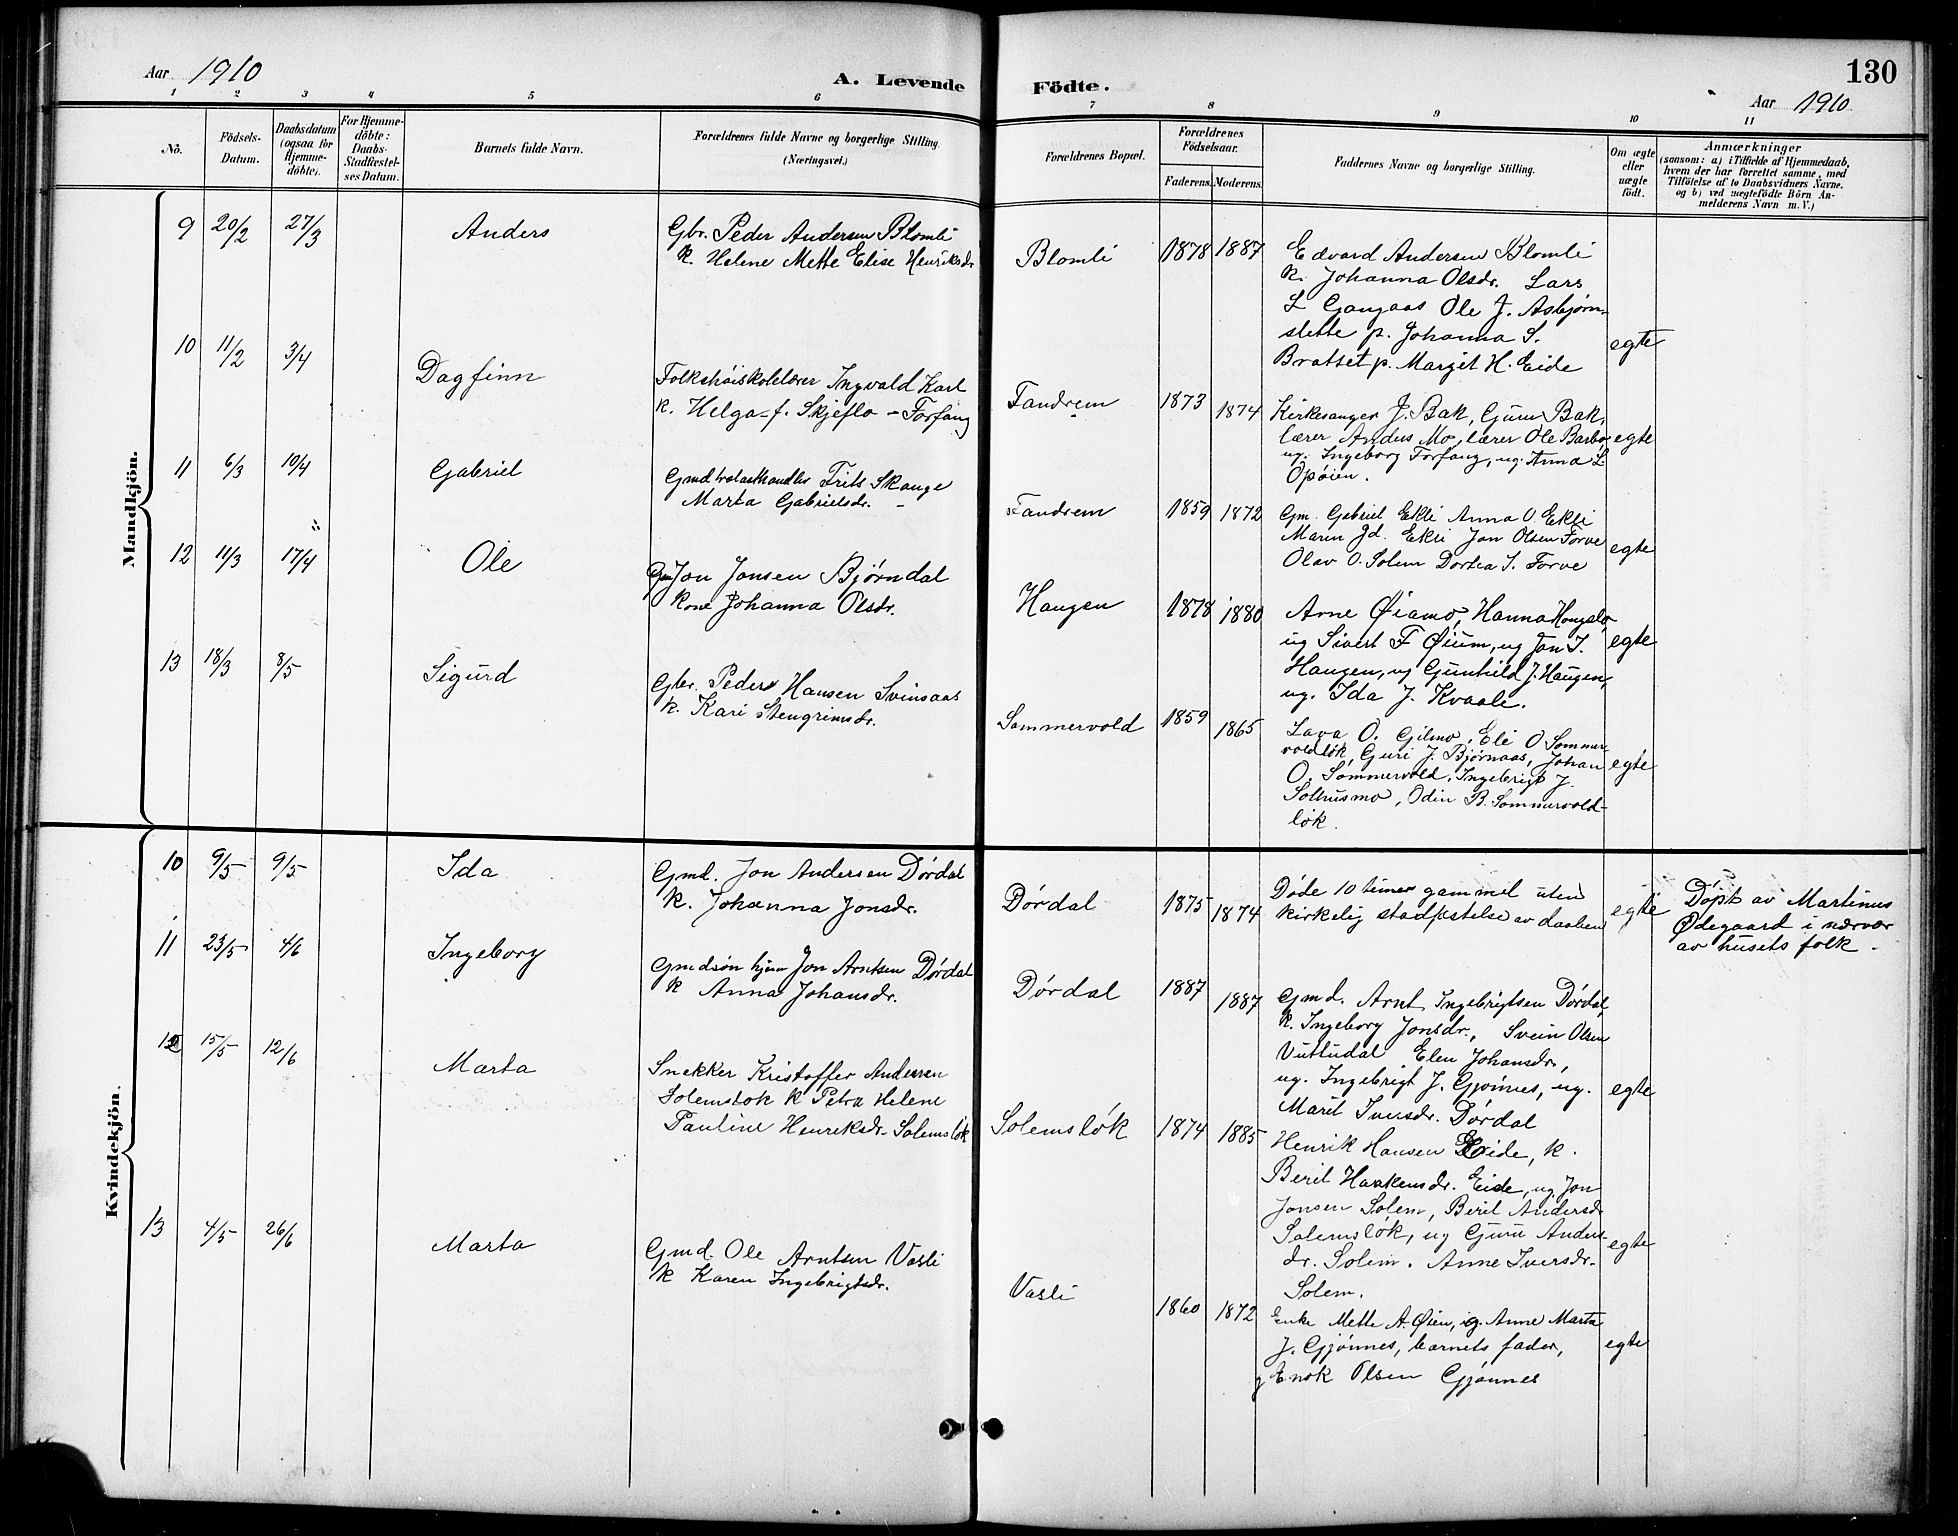 Aar 1910
A. Levende Födte.
130
Aar 1910
1 2 3 4 5 6 7 8 9 10 11
No.
Födsels-
Datum.
Daabsdatum
(ogsaa for
Hjemme-
döbte).
For Hjemme-
döbte:
Daabs-
Stadfæstel-
ses Datum.
Barnets fulde Navn.
Forældrenes fulde Navne og borgerlige Stilling.
(Næringsvei.)
Forældrenes Bopæl.
Forældrenes
Födselsaar.
Faderens. Moderens.
Faddernes Navne og borgerlige Stilling.
Om ægte
eller
uægte
födt.
Anmærkninger
(saasom: a) i Tilfælde af Hjemmedaab,
hvem der har forrettet samme, med
Tilföielse af to Daabsvidners Navne,
og b) ved uægtefödte Börn An-
melderens Navn m. V.)
Mandkjön.
9 20/2 27/3 Anders
Gbr. Peder Andersen Blomli
k. Helene Mette Elise Henriksdr
Blomli 1878 1887
Edvard Andersen Blomli
k. Johanna Olsdr. Lars
L Gangaas Ole J. Asbjørn-
slette p. Johanna S.
Bratset p. Margit H. Eide
egte
10 11/2 3/4 Dagfinn
Folkehøiskolelærer Ingvald Karl
k. Helga f. Skjeflo - Forfang
Fandrem 1873 1874
Kirkesanger J. Bak, Guru Bak,
lærer Anders Mo, lærer Ole Barbo,
ug. Ingeborg Forfang, ug. Anna L
Opøien.
egte
11 6/3 10/4 Gabriel
Gmd Frits Skauge
Marta Gabrielsdr. -
Fandrem 1859 1872
Gm. Gabriel Ekli Anna O Ekli
Marin Jd. Ekli Jon Olsen Forve
Olav O. Solem Dortea S. Forve
egte
12 11/3 17/4 Ole
Gm Jon Jonsen Bjørndal
Kone Johanna Olsdr.
Haugen 1878 1880
Arne Øiamo, Hanna Hongslo,
ug Sivert F Øium, ug Jon J.
Haugen, ug Gunhild J. Haugen,
ug. Ida J. Kvaale.
egte
13 18/3 8/5 Sigurd
Gbr. Peder Hansen Svinsaas
k. Kari Stengrimsdr.
Sommervold 1859 1865
Lava O. Gilmo, Eli O Sommer-
voldløk, Guri J. Bjørnaas, Johan
O. Sommervold, Ingebrigt J.
Solhusmo, Odin B. Sommervold-
løk.
egte
Kvindekjön.
10 9/5 9/5 Ida
Gmd. Jon Andersen Dørdal
k. Johanna Jonsdr.
Dørdal 1875 1874
Døde 10 timer gammel uten
kirkelig stadfæstelse av daaben
egte
Døpt av Martinus
Ødegaard i nærvær
av husets folk.
11 23/5 4/6 Ingeborg
Gmdsøn hjem Jon Arntsen Dørdal
k Anna Johansdr.
Dørdal 1887 1887
Gmd. Arnt Ingebrigtsen Dørdal,
k. Ingeborg Jonsdr., Svein Olsen
Vuttudal Elen Johansdr,
ug. Ingebrigt J. Gjønnes, ug.
Marit Iversdr. Dørdal
egte
12 15/5 12/6 Marta
Snekker Kristoffer Andersen
Solemsløk k Petra Helene
Pauline Henriksdr. Solemsløk
Solemsløk 1874 1885
Henrik Hansen Eide, k.
Berit Haakensdr. Eide, ug Jon
Jonsen Solem, Berit Andersdr
Solemsløk, ug Guru Anders-
dr. Solem. Anne Iversdr.
Solem.
egte
13 4/5 26/6 Marta
Gmd. Ole Arntsen Vasli
k Karen Ingebrigtsdr.
Vasli 1860 1872
Enke Mette A. Øien, ig. Anne Marta
J. Gjønnes, barnets fader,
g Enok Olsen Gjønnes
egte